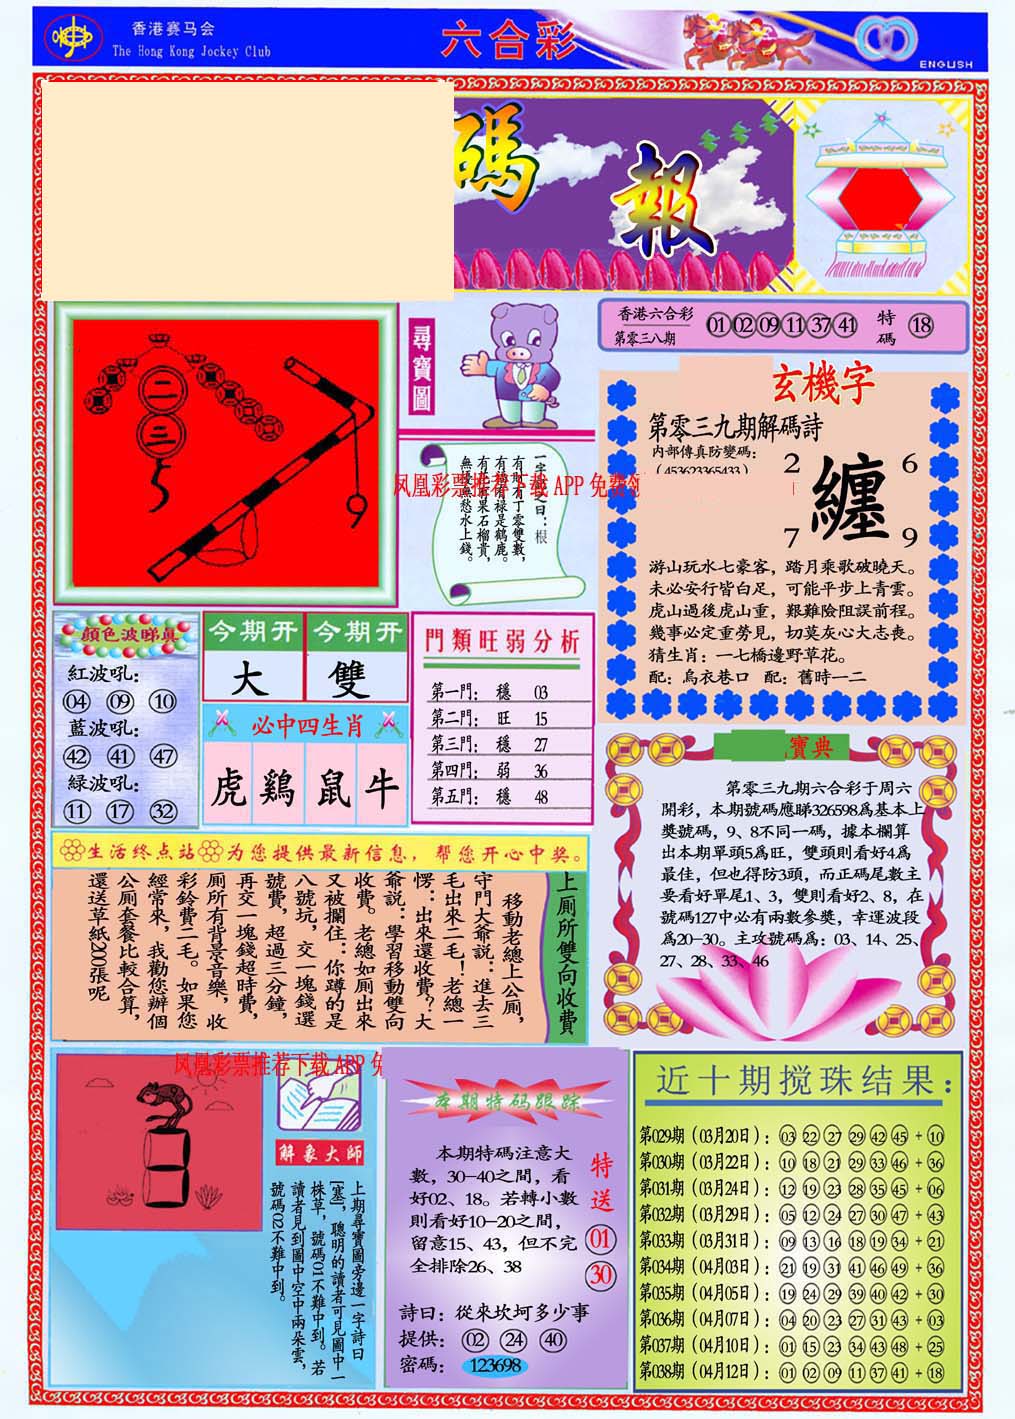 香港赛马会
The Hong Kong Jockey Club
六合彩
ENGLISH
碼
報
尋寶圖
二
三
5
9
香港六合彩
第零三八期
01 02 09 11 37 41
特碼
18
玄機字
第零三九期解碼詩
内部傳真防變碼：
（453623365433）
2
6
纏
7
9
游山玩水七豪客，踏月乘歌破曉天。
未必安行皆白足，可能平步上青雲。
虎山過後虎山重，艱難險阻誤前程。
幾事必定重勞見，切莫灰心大志喪。
猜生肖：一七橋邊野草花。
配：烏衣巷口 配：舊時一二
凤凰彩票推荐下载 APP 免费
有
有丁零雙數，
有
禄是鶴鹿。
有
果石榴貴，
無
愁水上錢。
顔色波睇真
紅波吼：
04 09 10
藍波吼：
42 41 47
緑波吼：
11 17 32
今期开
今期开
大
雙
必中四生肖
虎 鷄 鼠 牛
門類旺弱分析
第一門： 穩 03
第二門： 旺 15
第三門： 穩 27
第四門： 弱 36
第五門： 穩 48
寶典
第零三九期六合彩于周六
開彩，本期號碼應睇326598爲基本上
獎號碼，9、8不同一碼，據本欄算
出本期單頭5爲旺，雙頭則看好4爲
最佳，但也得防3頭，而正碼尾數主
要看好單尾1、3，雙則看好2、8，在
號碼127中必有兩數參獎，幸運波段
爲20-30。主攻號碼爲：03、14、25、
27、28、33、46
生活终点站 为您提供最新信息，帮您开心中奖。
上厠所雙向收費
移動老總上公厠，
守門大爺説：進去三
毛出來二毛！老總一
愣：出來還收費？大
爺説：學習移動雙向
收費。老總如厠出來
又被攔住：你蹲的是
八號坑，交一塊錢選
號費，超過三分鐘，
再交一塊錢超時費，
厠所有背景音樂，收
彩鈴費二毛。如果您
經常來，我勸您辦個
公厠套餐比較合算，
還送草紙2000張呢
凤凰彩票推荐下载 APP 免
解象大師
上期尋寶圖旁邊一字詩曰
[塞]，聰明的讀者可見圖中一
株草，號碼01不難中到。若
讀者見到圖中空中兩朵雲，
號碼02不難中到。
本期特码跟踪
本期特碼注意大
數，30-40之間，看
好02、18。若轉小數
則看好10-20之間，
留意15、43，但不完
全排除26、38
特送
01
30
詩曰：從來坎坷多少事
提供： 02 24 40
密碼： 123698
近十期搅珠结果：
第029期（03月20日）：03 22 27 29 42 45 + 10
第030期（03月22日）：10 18 21 29 33 46 + 36
第031期（03月24日）：12 19 23 28 35 45 + 06
第032期（03月29日）：05 12 24 27 30 47 + 43
第033期（03月31日）：09 13 16 18 19 34 + 21
第034期（04月03日）：21 19 31 41 46 49 + 36
第035期（04月05日）：19 24 29 39 40 42 + 30
第036期（04月07日）：04 20 23 27 31 43 + 03
第037期（04月10日）：01 15 23 34 43 48 + 25
第038期（04月12日）：01 02 09 11 37 41 + 18